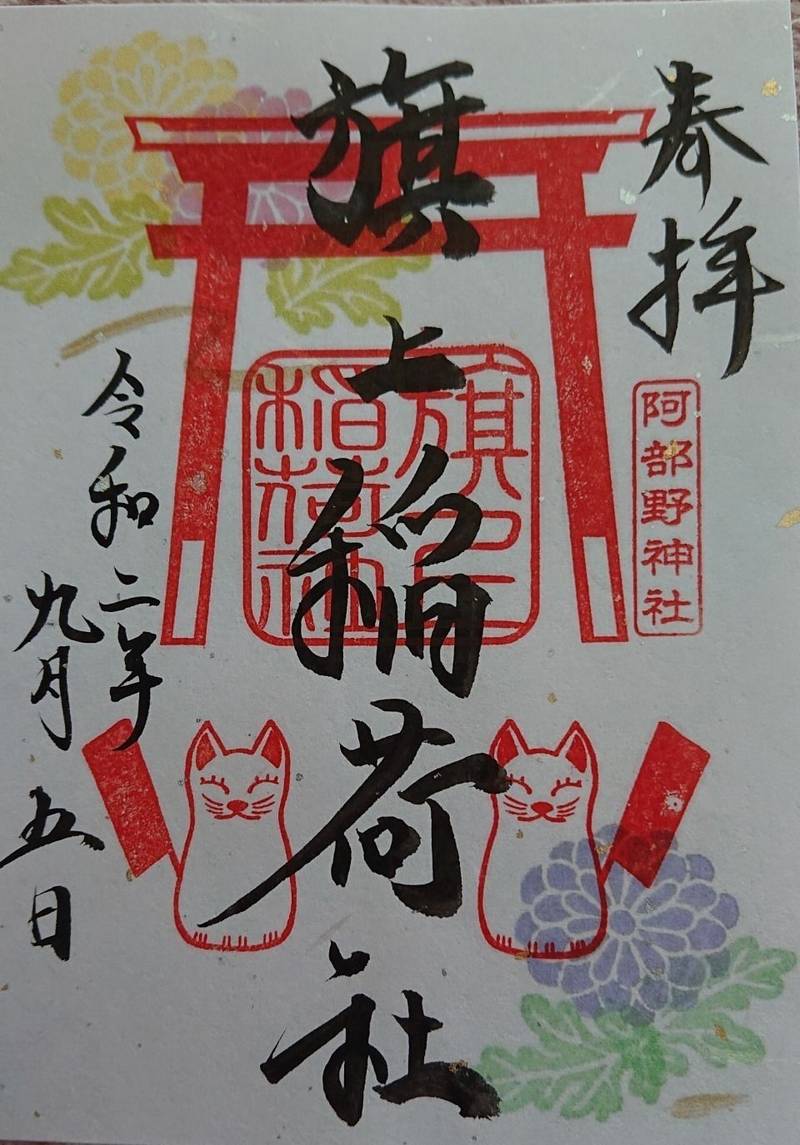 奉拝
阿部野神社
旗上稲荷社
旗上
稲荷社
令和二年
九月五日